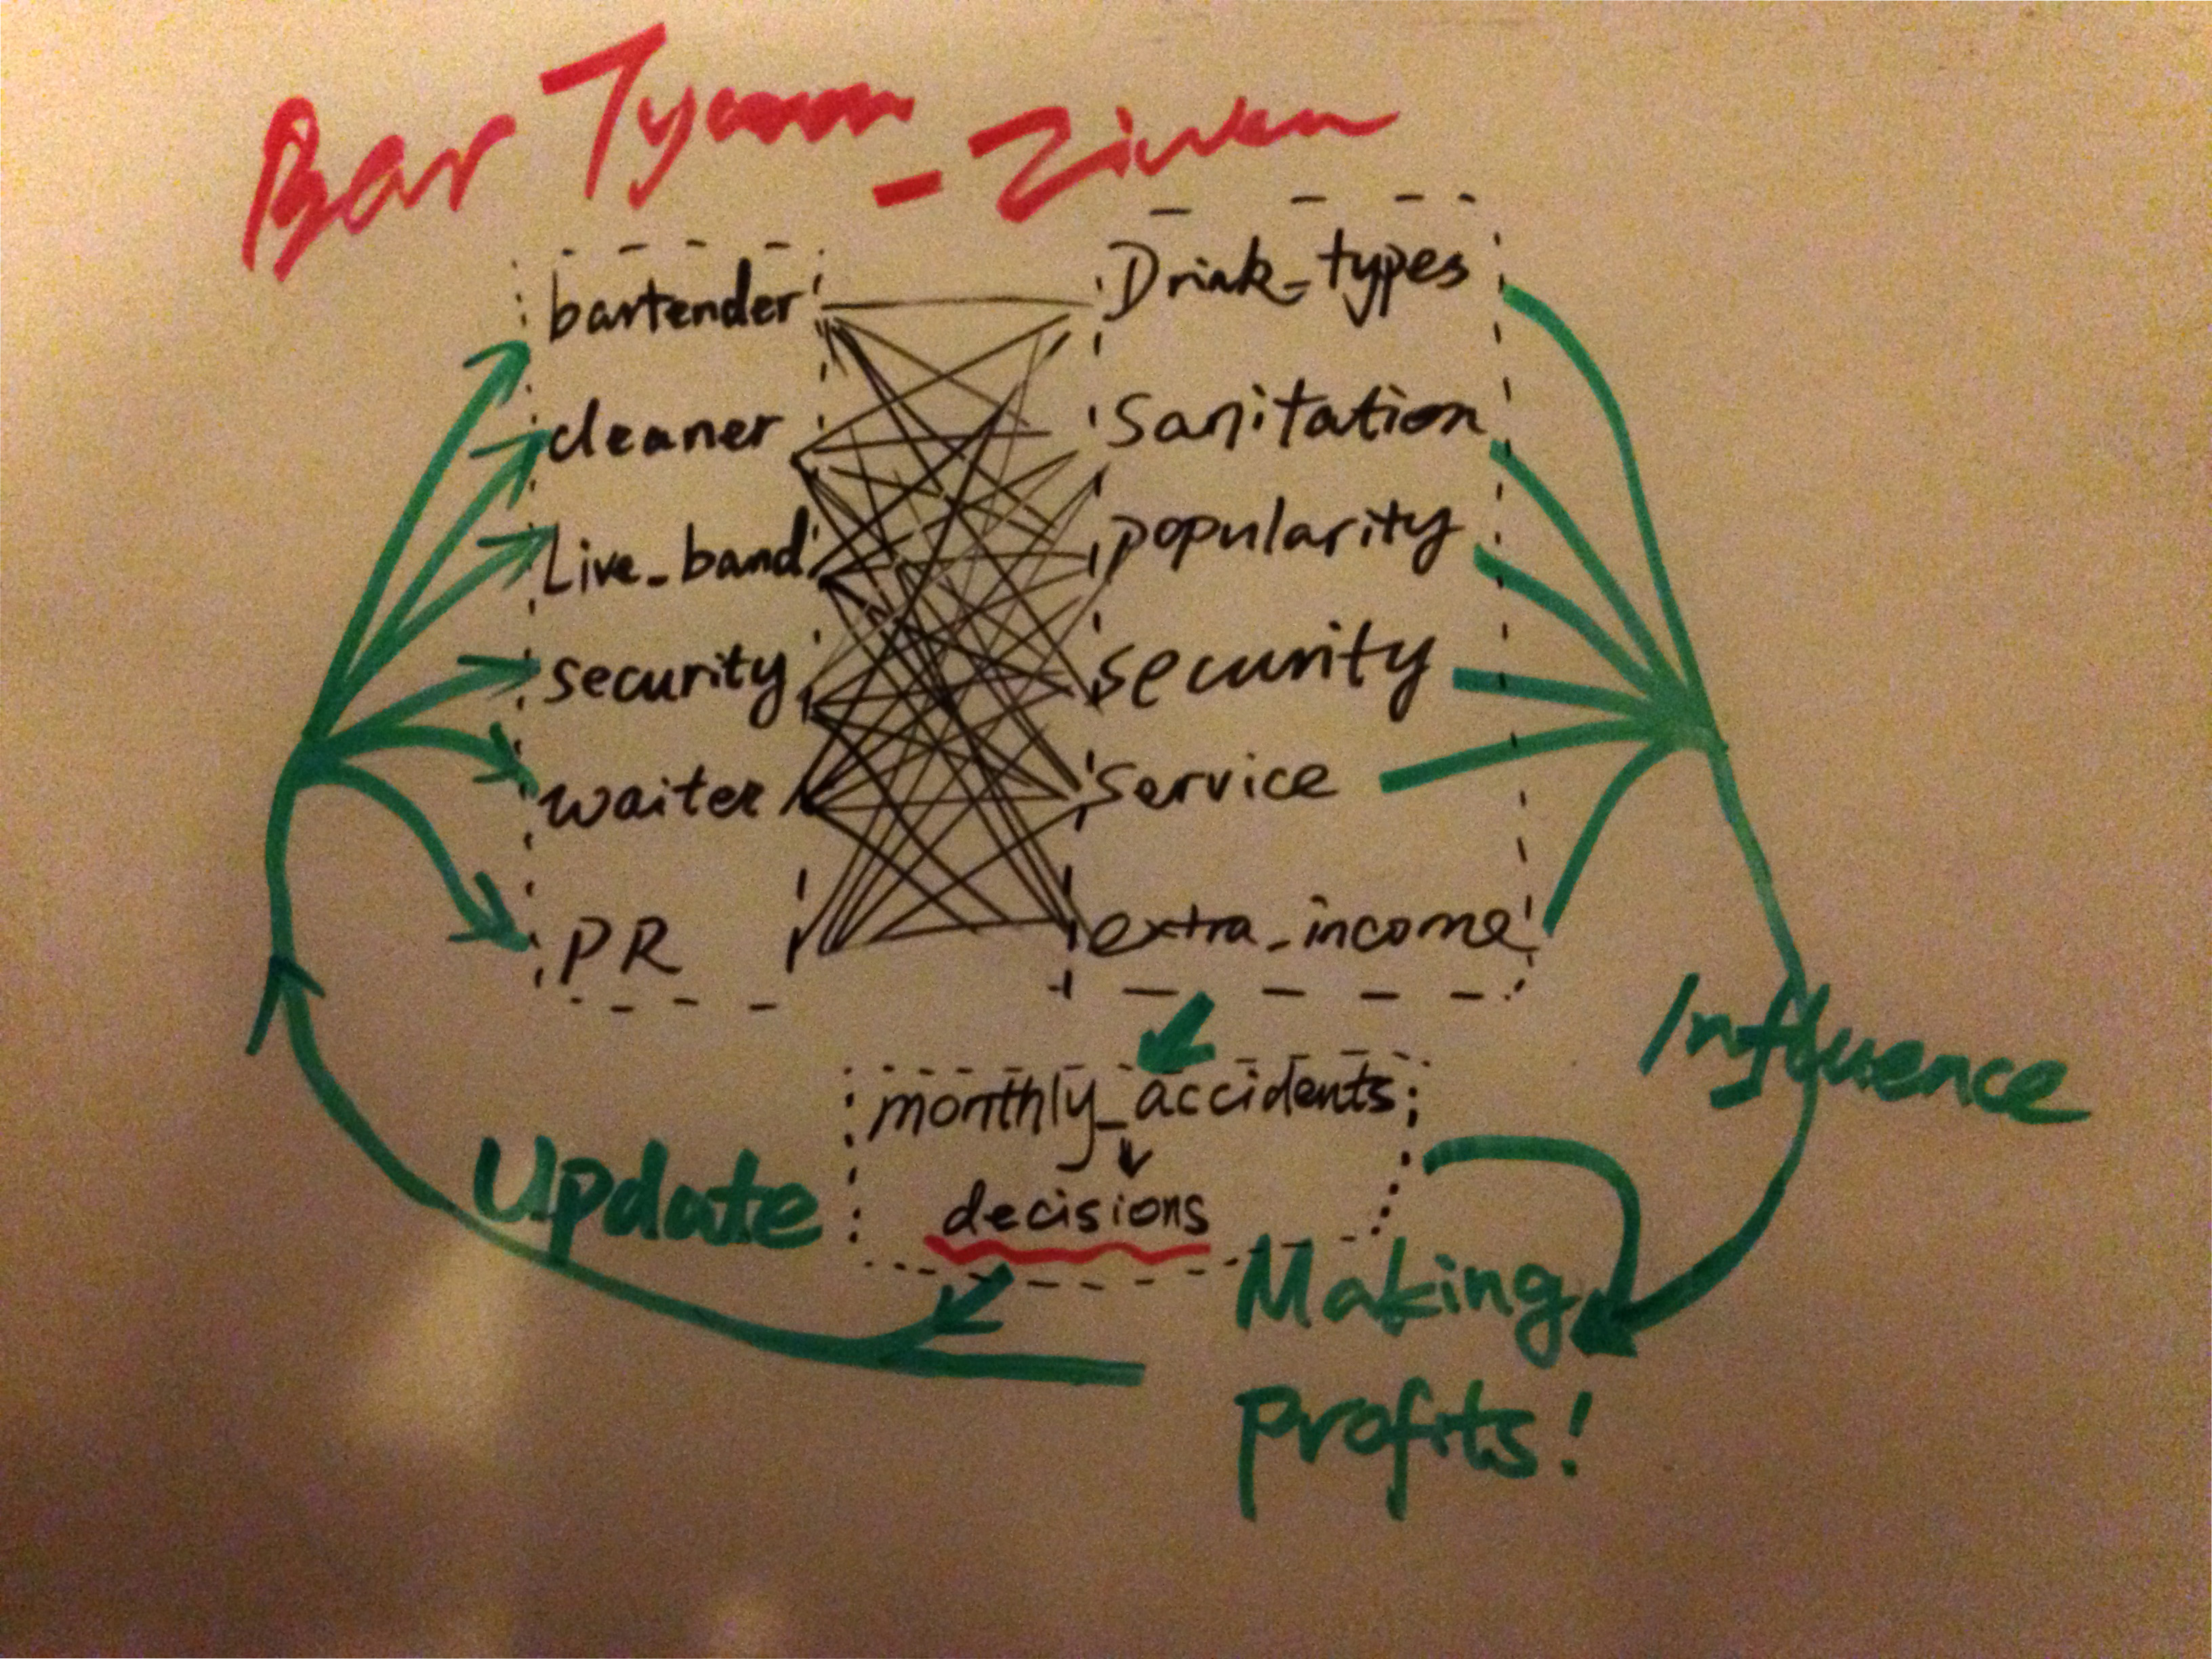 Bar Tycoon
bartender
cleaner
Live_band
security
waiter
PR
Drink_types
Sanitation
popularity
security
Service
extra_income
monthly_accidents
decisions
Influence
Update
Making
profits!